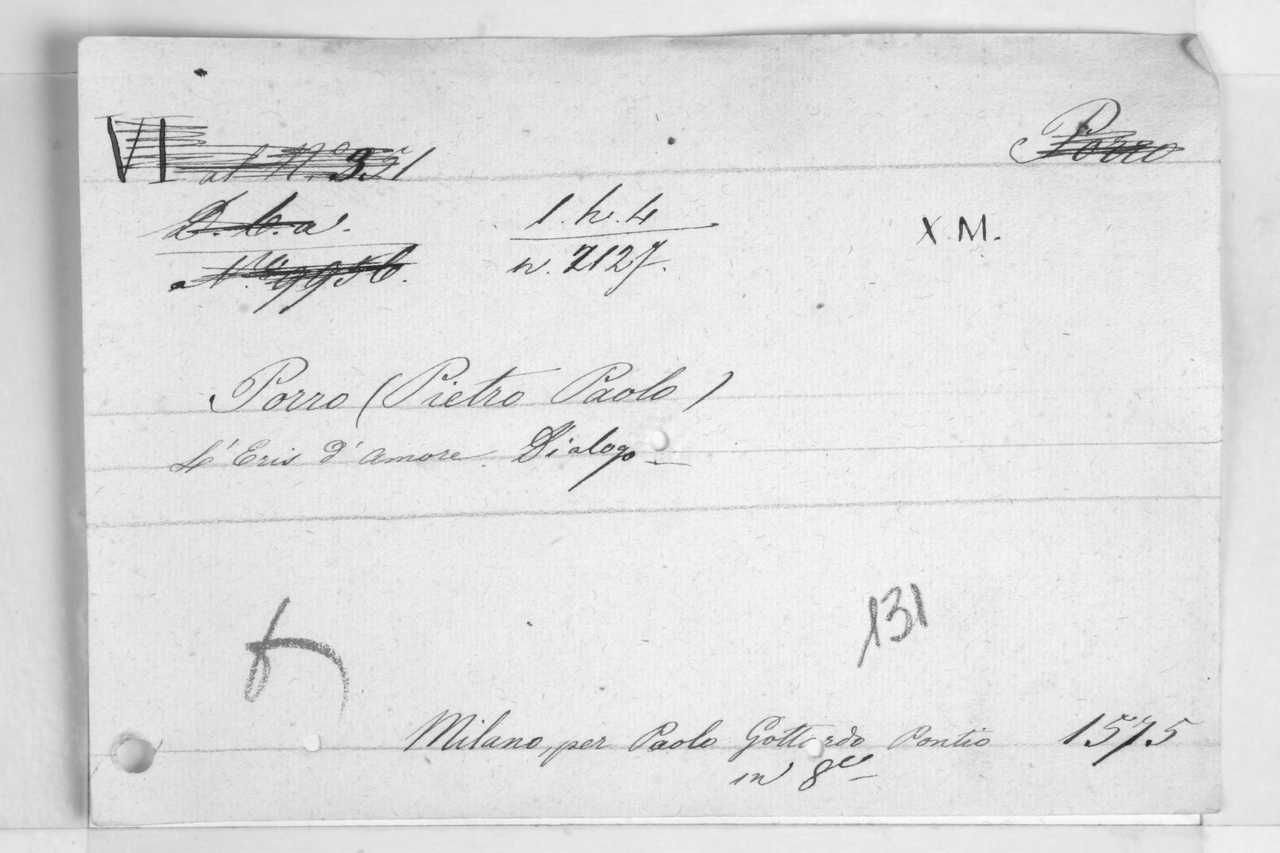 VI al N.º 321
Porro
D. b. a.
N.º 9956.
l. h. 4
n. 2127.
X. M.
Porro (Pietro Paolo)
L'Eris d'amore. Dialogo
131
Milano, per Paolo Gottardo Pontio 1575
in 8º